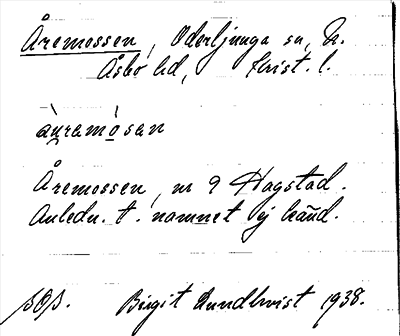 Åremossen, Oderljunga sn, N.
Åsbo hd, Krist. l.
àɥremósan
Åremossen, nr 9 Hagstad.
Anledn. t. namnet ej känd.
Birgit Lundkvist 1938.